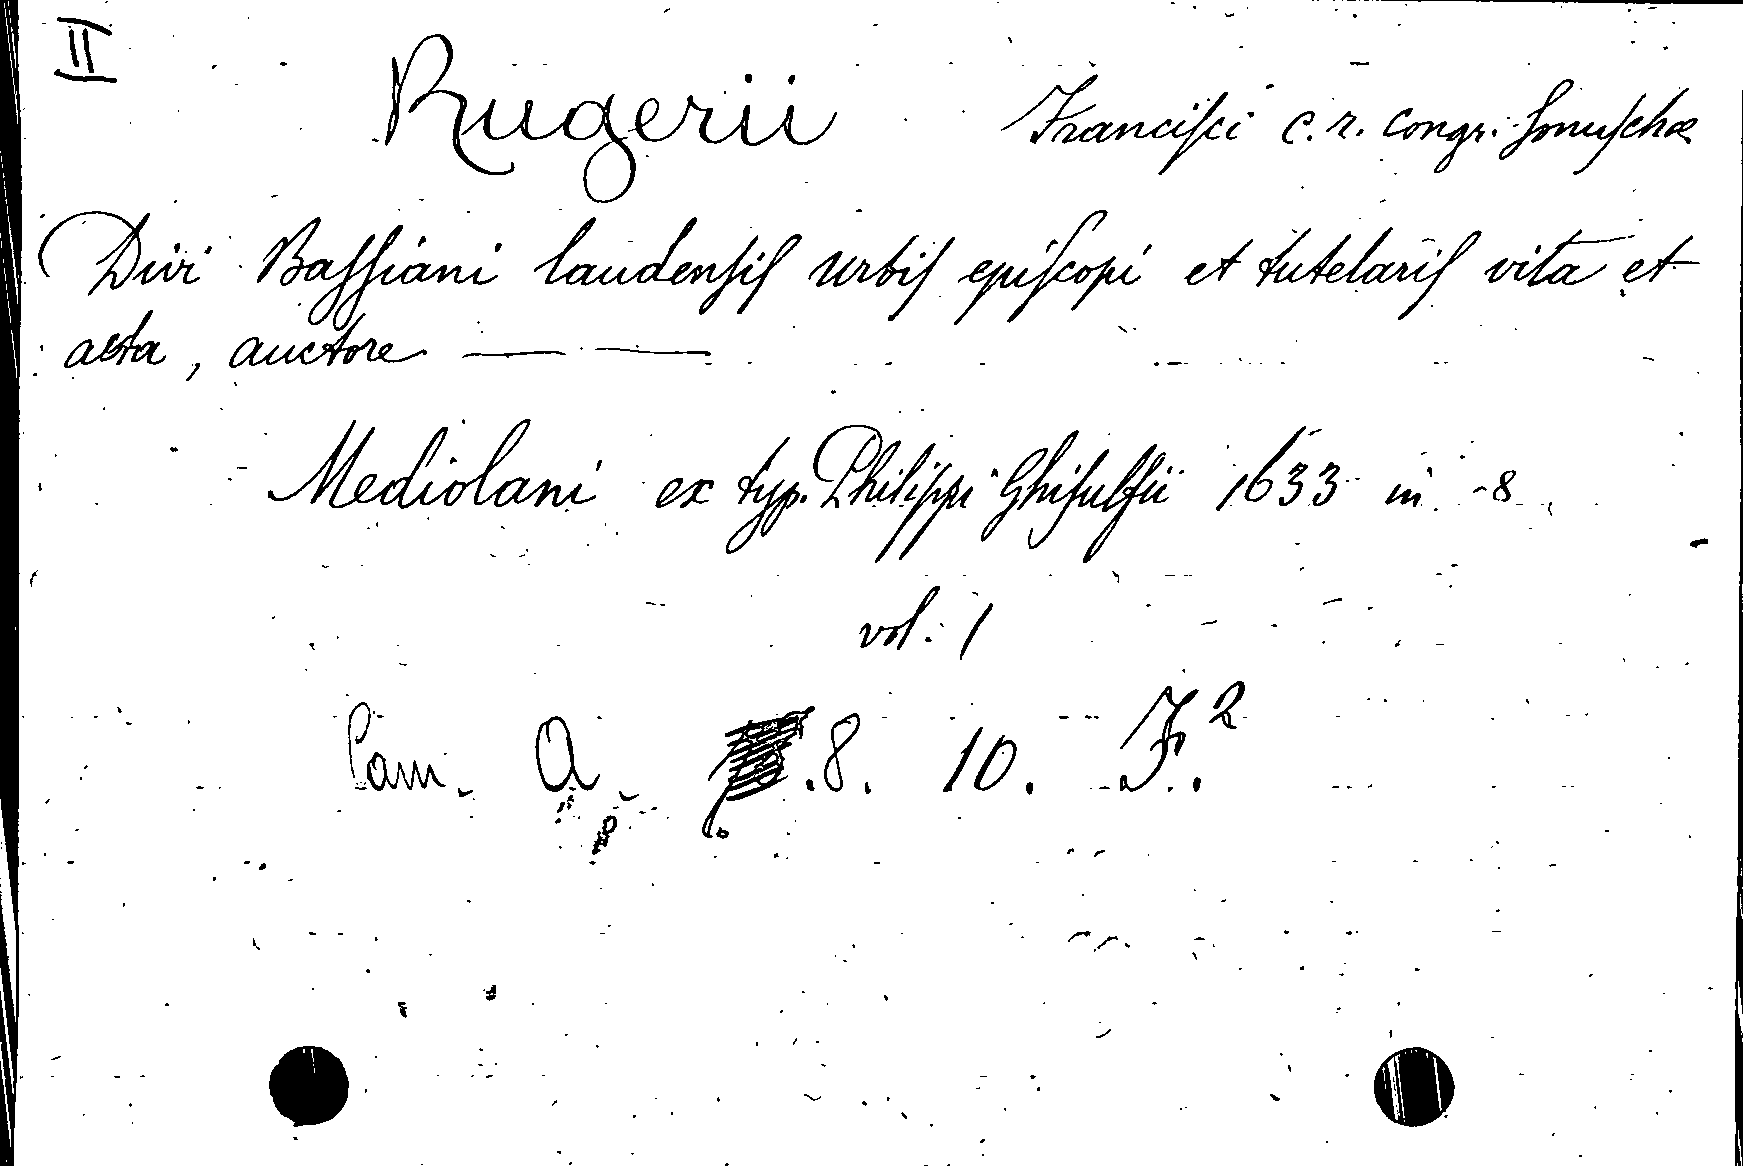 II
Rugerii Francisci c. r. congr. Somaschæ
Divi Bassiani laudensis urbis episcopi et tutelaris vita et
acta, auctore — —
Mediolani ex typ. Philippi Ghisulfii 1633 in -8
vol. 1
Cam. A. .8. 10. F.²